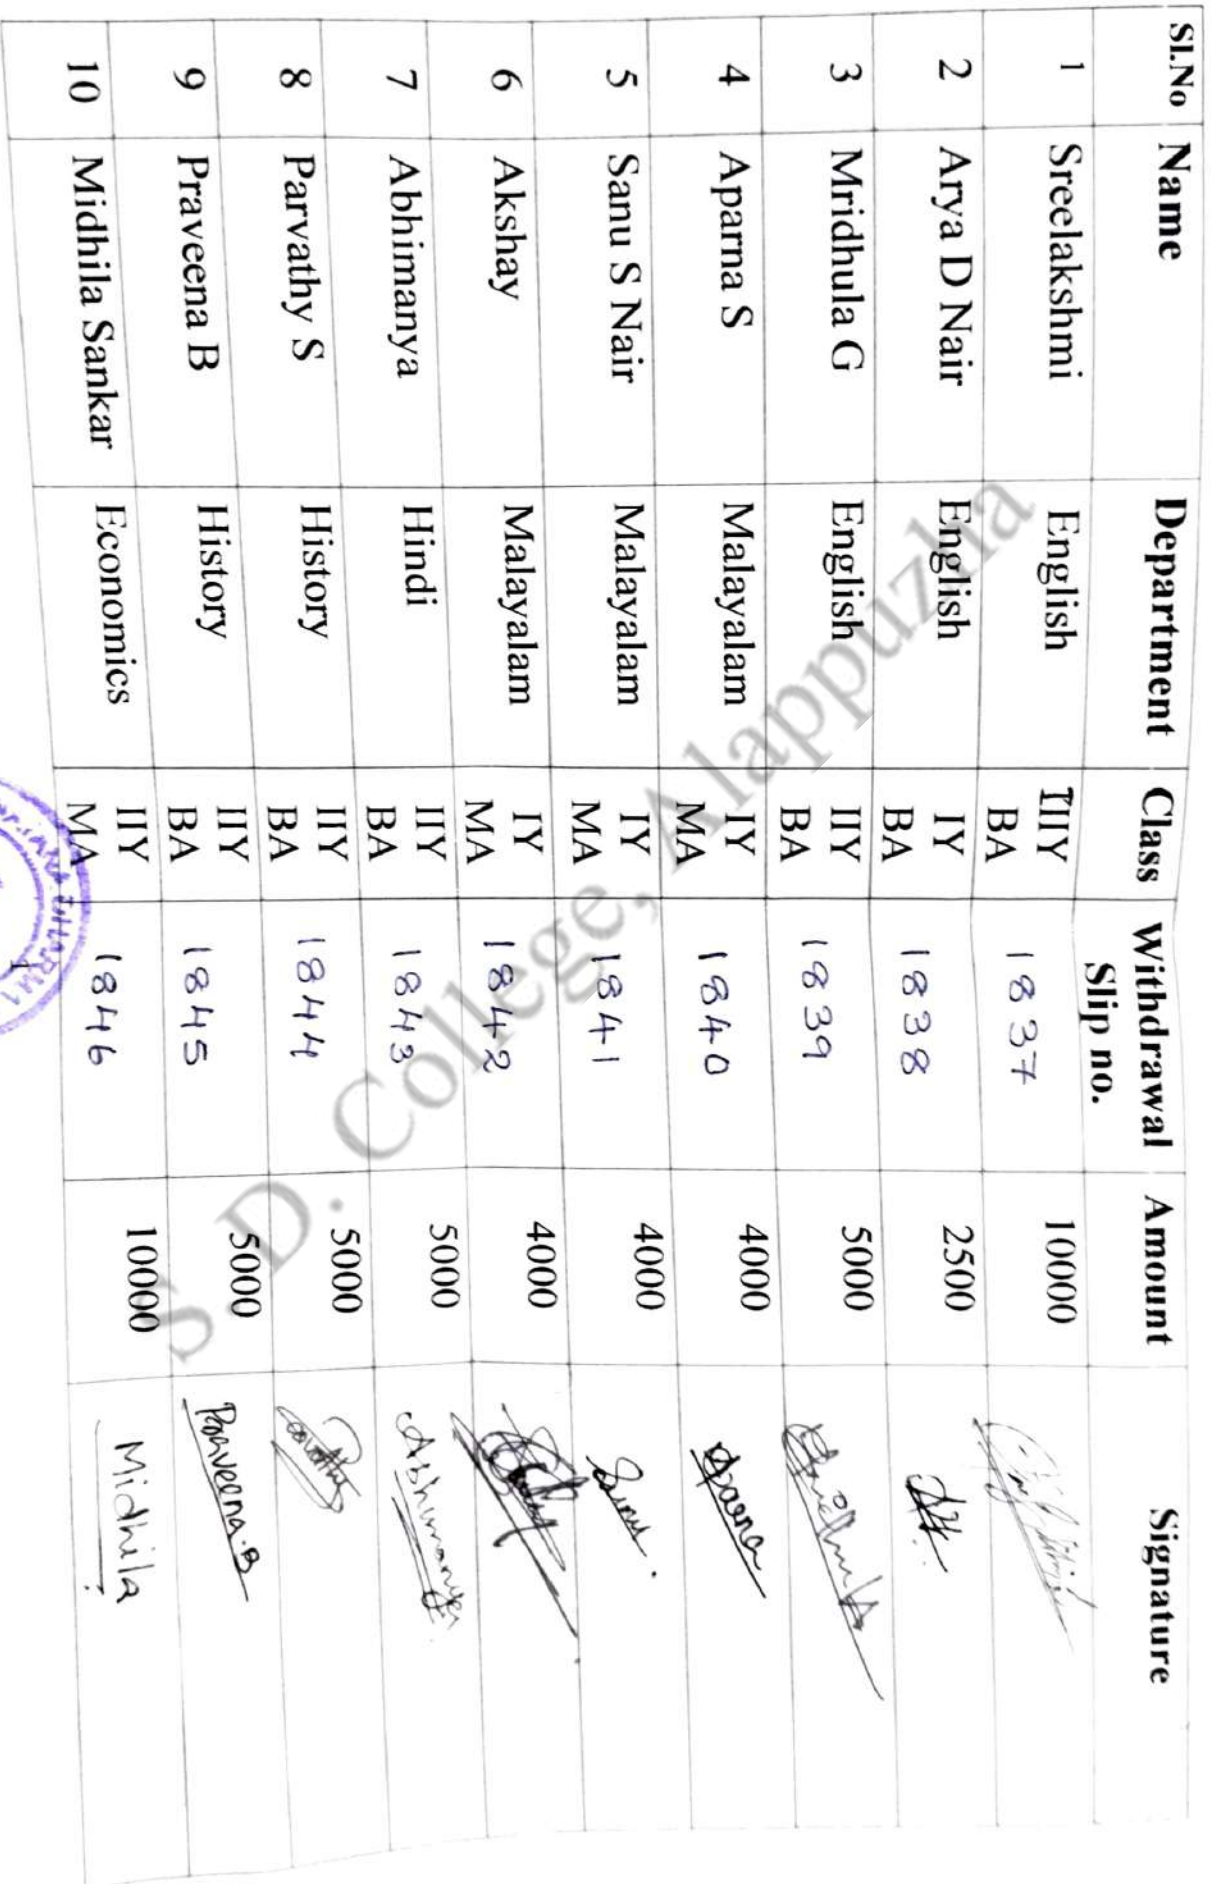 Sl.No Name Department Class Withdrawal Slip no. Amount Signature
1 Sreelakshmi English IIIY BA 1837 10000
2 Arya D Nair English IY BA 1838 2500
3 Mridhula G English IIY BA 1839 5000
4 Aparna S Malayalam IY MA 1840 4000 Aparna
5 Sanu S Nair Malayalam IY MA 1841 4000 Sanu
6 Akshay Malayalam IY MA 1842 4000
7 Abhimanya Hindi IIY BA 1843 5000 Abhimanya
8 Parvathy S History IIY BA 1844 5000
9 Praveena B History IIY BA 1845 5000 Praveena.B
10 Midhila Sankar Economics IIY MA 1846 10000 Midhila
S. D. College, Alappuzha